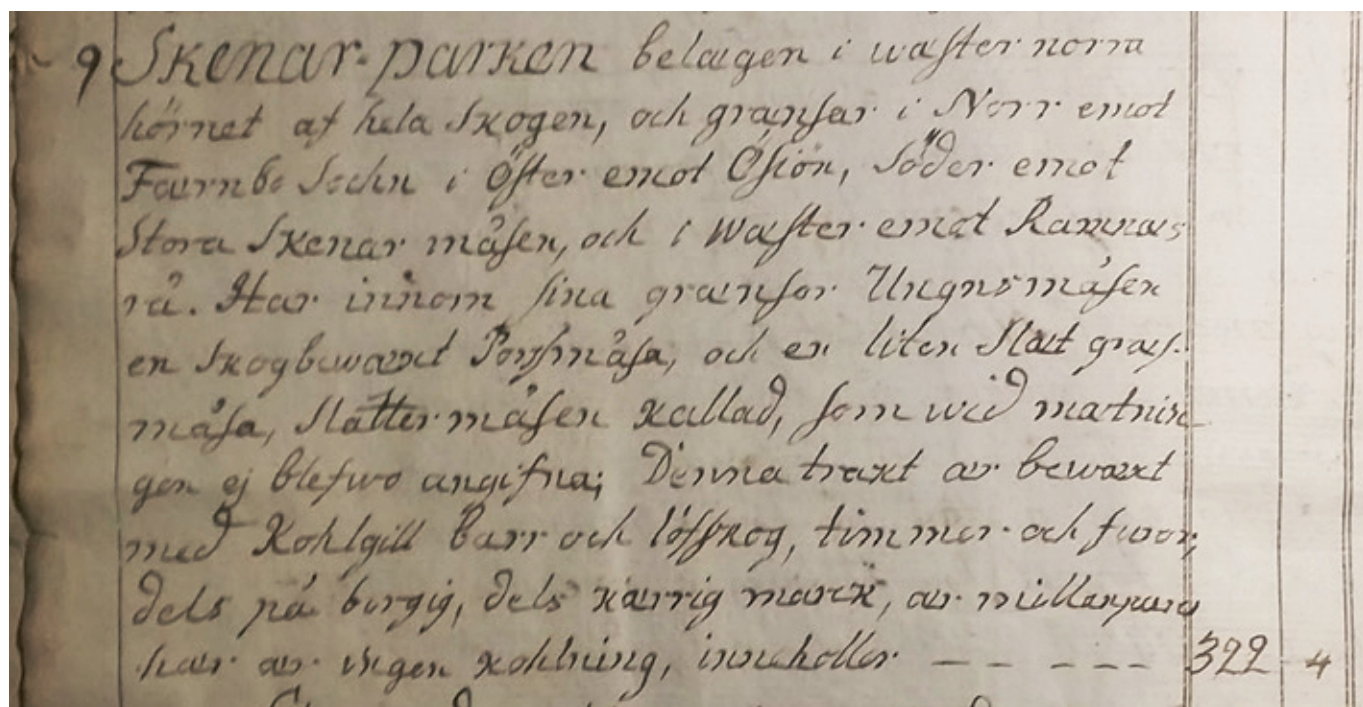 9 Skenar-parken belægen i wæster norra
hörnet af hela Skogen, och grænsar i Norr emot
Færnbo Sochn i Öster emot Ösiön, Söder emot
Stora Skenar måsen, och i Wæster emot Ramnæs
rå. Har innom sina grænsor Ungnsmåsen
en Skogbewæxt Porssmåsa, och en liten Slæt græs-
måsa, Slåtter måsen kallad, som wid mætnin-
gen ej blefwo angifna; Denna traxt ær bewæxt
med Kohlgill barr och löfskog, timmer och furor,
dels på bergig, dels kærrig marck, ær
hær ær ingen kohlning, inneholler – – – – – 322 4